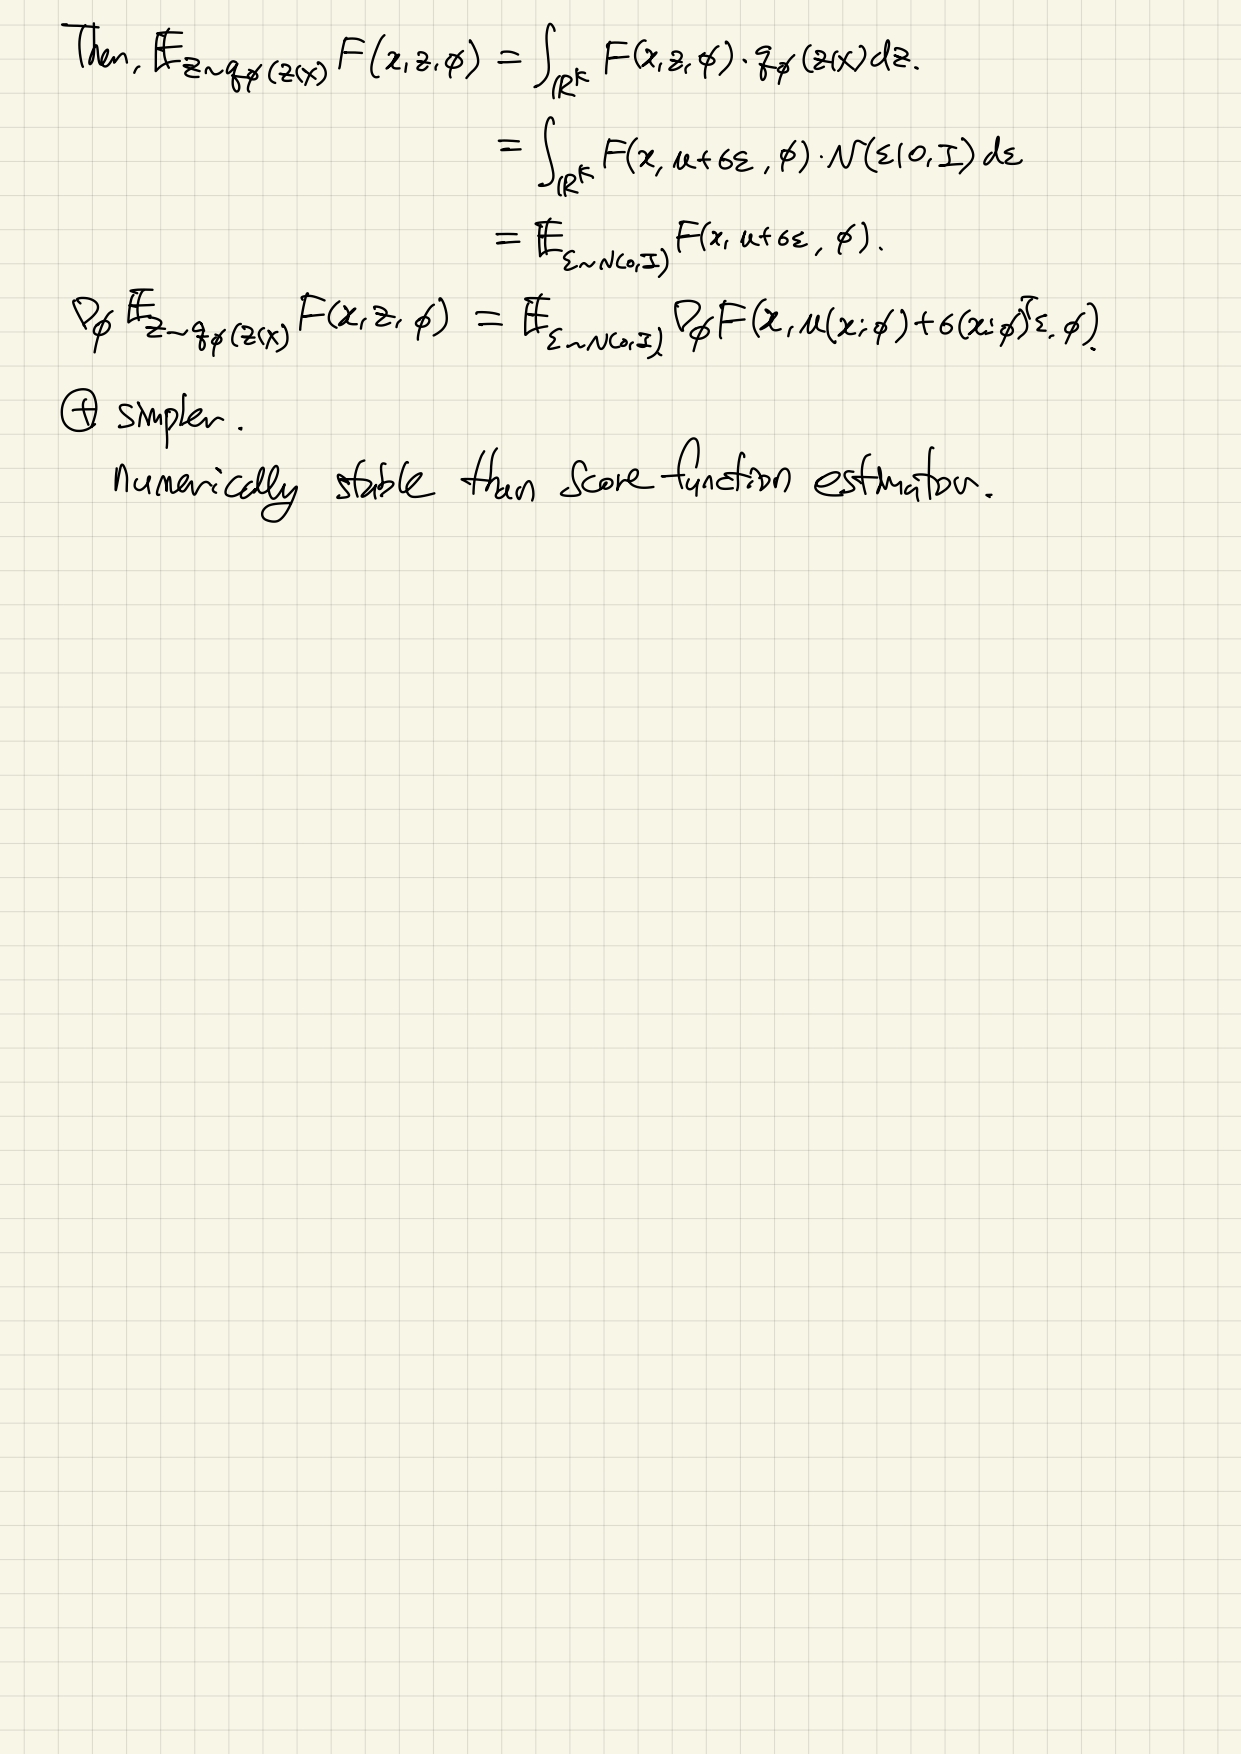 Then, 𝔼_{z∼q_ϕ(z|x)} F(x, z, ϕ) = ∫_{ℝ^K} F(x, z, ϕ) · q_ϕ(z|x) dz.
= ∫_{ℝ^K} F(x, μ+σε, ϕ) · N(ε|0, I) dε
= 𝔼_{ε∼N(0,I)} F(x, μ+σε, ϕ).
∇_ϕ 𝔼_{z∼q_ϕ(z|x)} F(x, z, ϕ) = 𝔼_{ε∼N(0,I)} ∇_ϕ F(x, μ(x;ϕ)+σ(x;ϕ)^T ε, ϕ).
⊕ simpler.
numerically stable than score function estimator.